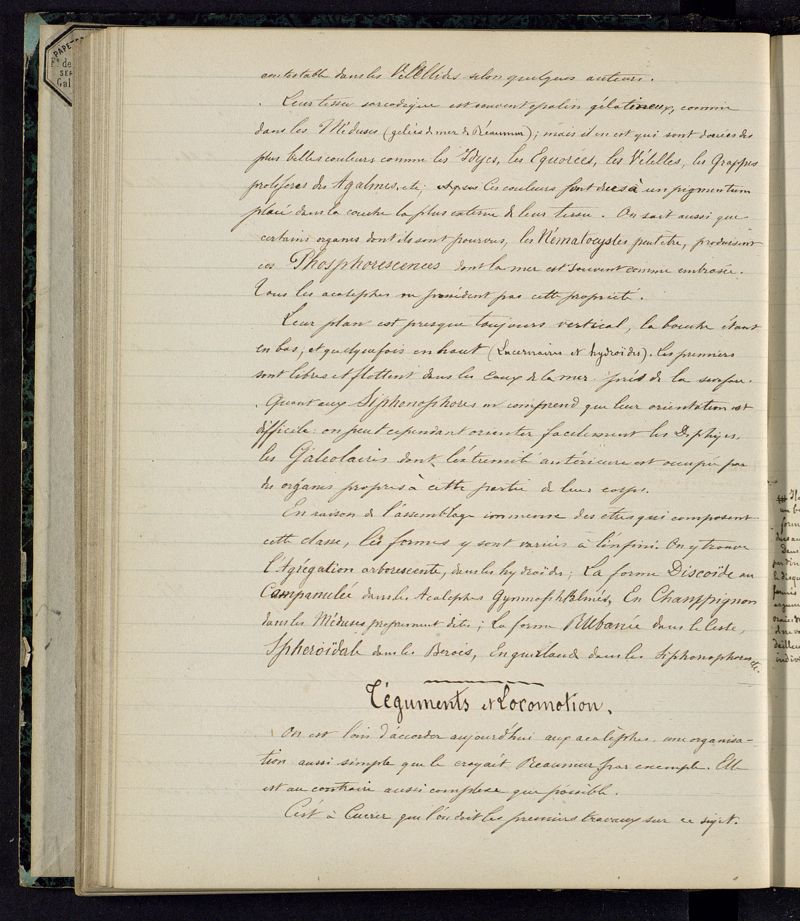 PAPET
contestable dans les Vélellides selon quelques auteurs.
Leur tissu sarcodique est souvent opalin gélatineux, comme
dans les Méduses (gelées de mer de Réaumur); mais il en est qui sont douées des
plus belles couleurs comme les Idyes, les Equorées, les Vélelles, les Grappes
prolifères des Agalmes, etc; Ces couleurs sont dues à un pigmentum
placé dans la couche la plus externe de leur tissu. On sait aussi que
certains organes dont ils sont pourvus, les Nématocystes peut être, produisent
ces Phosphorescences dont la mer est souvent comme embrasée.
Tous les acalèphes ne possèdent pas cette propriété.
Leur plan est presque toujours vertical, la bouche étant
en bas, et quelquefois en haut (Lucernaires et hydroïdes). Les premiers
sont libres et flottent dans les Eaux de la mer près de la surface.
Quant aux Siphonophores on comprend que leur orientation est
difficile: on peut cependant orienter facilement les Diphyes,
les Galéolaires dont l'extremité antérieure est occupée par
des organes propres à cette partie de leur corps.
En raison de l'assemblage immense des êtres qui composent
cette classe, les formes y sont variées à l'infini. On y trouve
l'Agrégation arborescente, dans les hydroïdes; La forme Discoïde ou
Campanulée dans les Acalèphes Gymnophthalmes, En Champpignon
dans les Méduses proprement dites; La forme Rubanée dans le Ceste,
Spheroïdale dans les Beroés, En guirlande dans les Siphonophores etc.
Téguments et Locomotion.
On est loin d'accorder aujourd'hui aux acalèphes une organisa-
tion aussi simple que le croyait Reaumur par exemple. Elle
est au contraire aussi complexe que possible.
C'est à Cuvier que l'on doit les premiers travaux sur ce sujet.